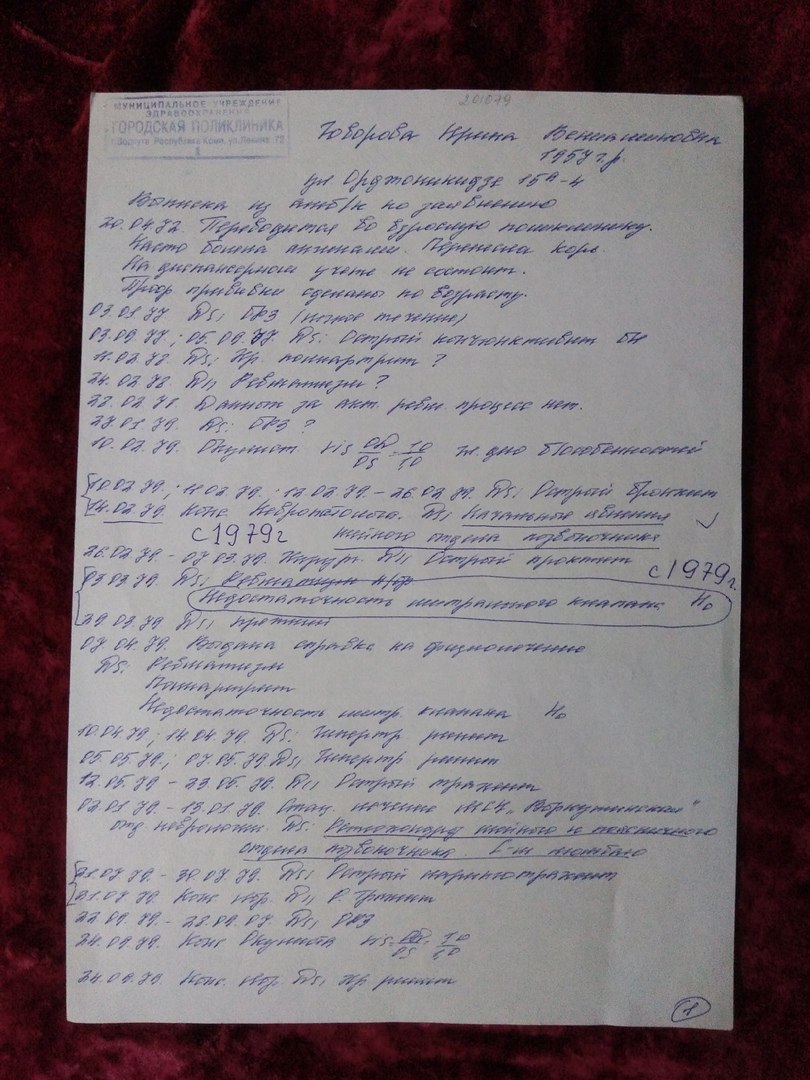 201079
МУНИЦИПАЛЬНОЕ УЧРЕЖДЕНИЕ
ЗДРАВООХРАНЕНИЯ
ГОРОДСКАЯ ПОЛИКЛИНИКА
г.Воркута Республика Коми, ул.Ленина, 72
1
Говорова Ирина Вениаминовна
1957 г.р.
ул Орджоникидзе 15А-4
Выписка из амб/к по заявлению
20.04.72. Переводится во взрослую поликлинику.
Часто болела ангинами. Перенесла корь.
На диспансерном учете не состоит.
Проф прививки сделаны по возрасту.
03.01.77 Ds: ОРЗ (легкое течение)
03.09.77; 05.09.77. Ds: Острый конъюнктивит
11.02.78. Ds: Хр. полиартрит?
24.02.78. Ds: Ревматизм?
28.02.78. Данных за акт. ревм. процесс нет.
27.01.79. Ds: ОРЗ?
10.02.79. Окулист vis OD/OS = 1,0/1,0 гл. дно б/особенностей
10.02.79.; 11.02.79.; 12.02.79. - 26.02.79. Ds: Острый бронхит
14.02.79. Конс. Невропатолога. Ds: Начальные явления
с 1979г шейного отдела позвоночника
26.02.79. - 07.03.79. Хирург. Ds: Острый проктит
с 1979г.
03.03.79. Ds: Ревматизм н/ф
Недостаточность митрального клапана Н₀
29.03.79 Ds: прежний
07.04.79. Выдана справка на физиолечение
Ds: Ревматизм
Полиартрит
Недостаточность митр. клапана Н₀
10.04.79; 14.04.79. Ds: Гипертр ринит
05.05.79; 07.05.79 Ds: Гипертр ринит
12.05.79 - 23.05.79. Ds: Острый трахеит
02.01.79. - 13.01.79. Стац. лечение МСЧ „Воркутинская"
отд неврологии. Ds: Остеохондроз шейного и поясничного
отдела позвоночника. С-м люмбаго
21.07.79. - 30.07.79. Ds: Острый ларинготрахеит
21.07.79. Конс лор. Ds:
22.09.79. - 28.09.07. Ds: ОРЗ
24.09.79. Конс Окулиста vis OD/OS = 1,0/1,0
24.09.79. Конс. лор. Ds: Хр ринит
1